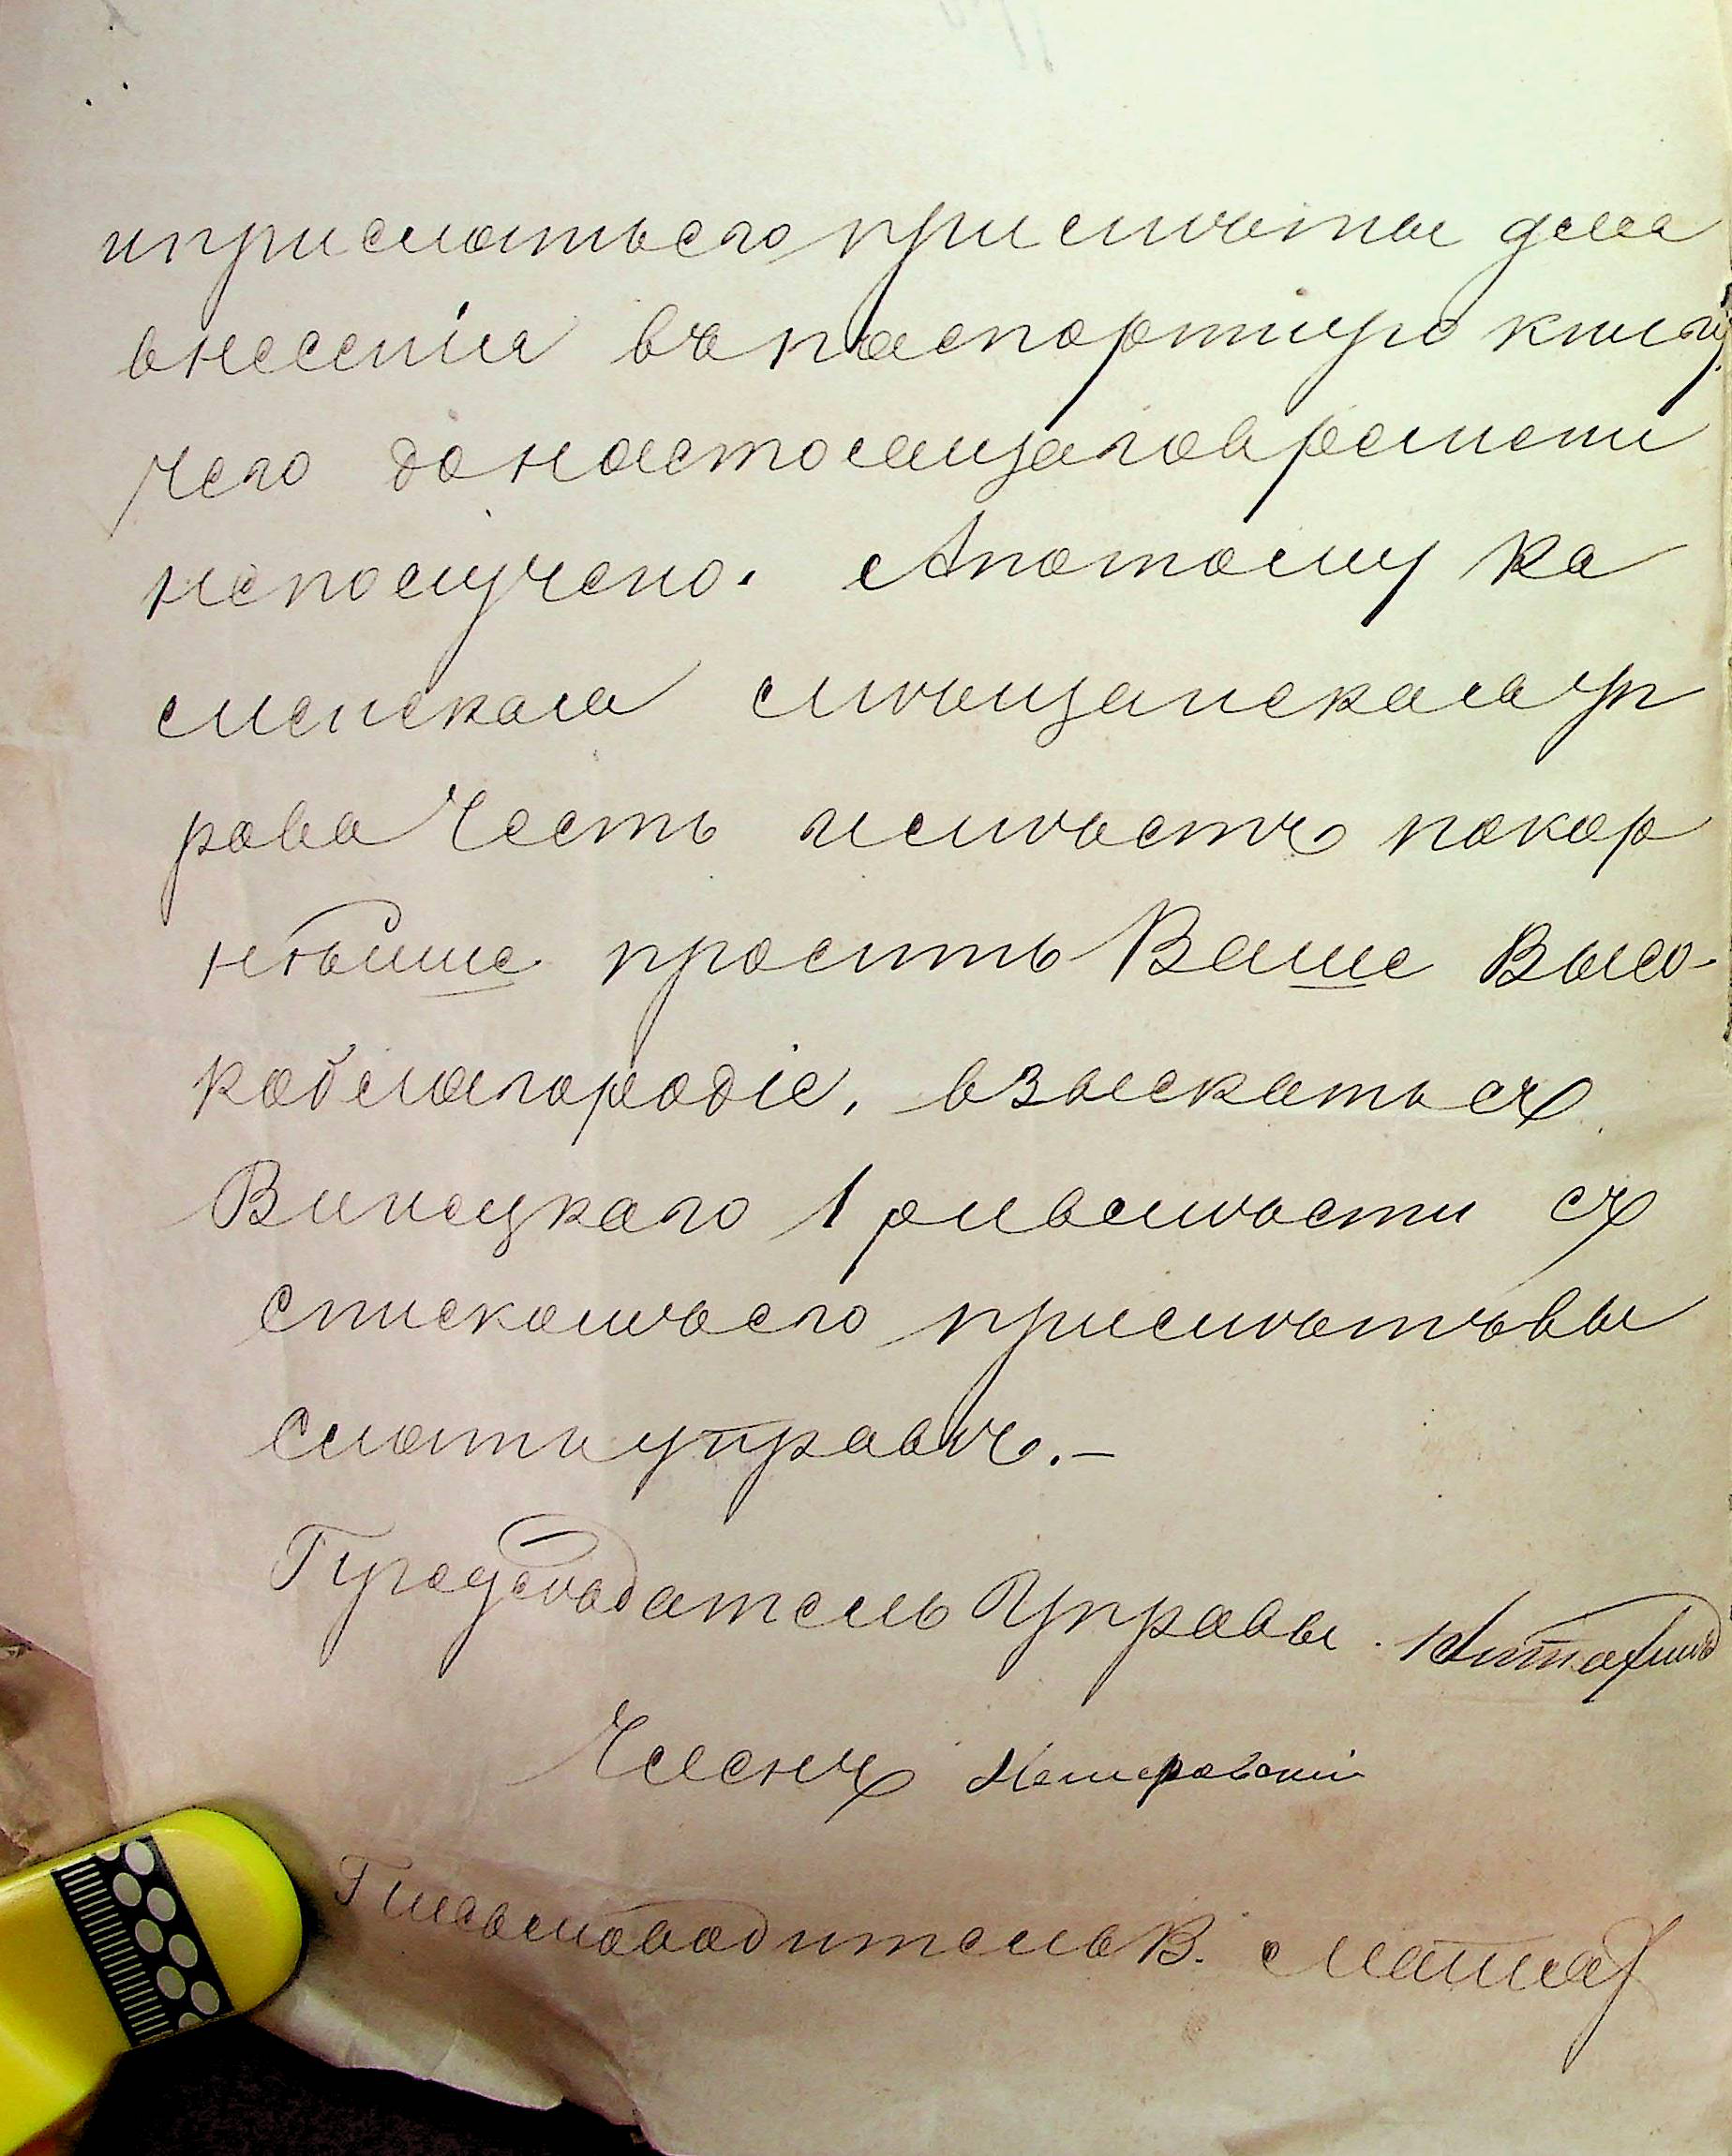 и прислать его приметы для
внесенія въ паспортную книгу,
чего до настоящаго времени
не получено. А потому Ка
менская мѣщанская Уп
рава честь имѣетъ покор
нѣйше просить Ваше Высо-
коблагородіе, взыскать съ
Винецкаго 1 р и вмѣсти съ
спискомъ его примѣтъ вы
слать управѣ.—
Предсѣдатель Управы
Членъ
Письмоводитель В.